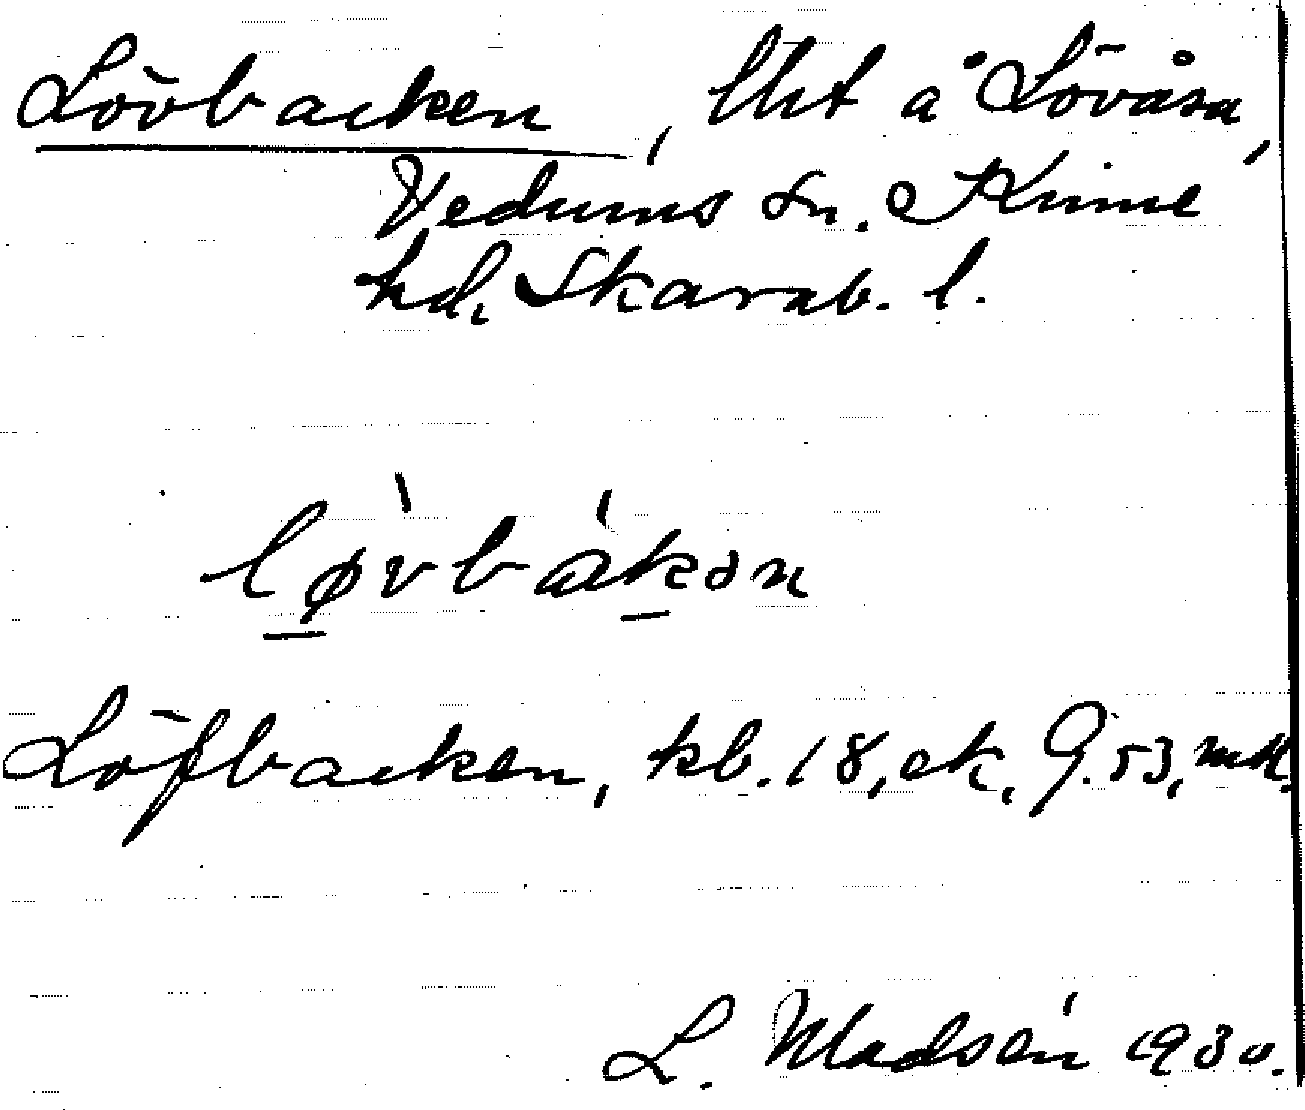 Lövbacken, lht å Lövåsa,
Vedums sn. Kinne
hd, Skarab. l.
lø̀vbákən
Löfbacken, kb. 18, ek. 9.53, mtl.
L. Madsén 1930.